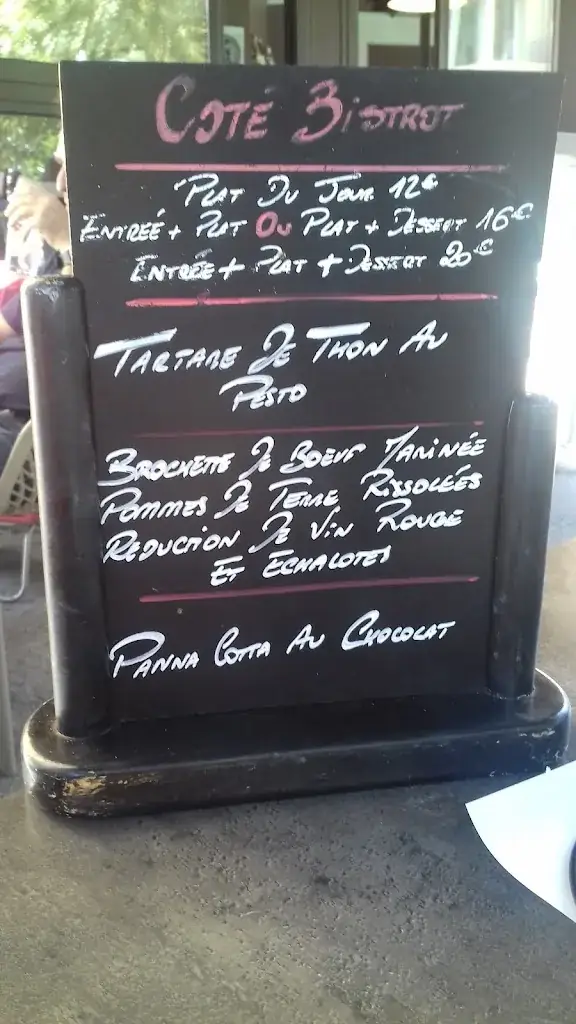 Coté Bistrot
Plat Du Jour 12€
Entreé + Plat Ou Plat + Dessert 16€
Entrée + Plat + Dessert 20€
Tartare De Thon Au
Pesto
Brochette De Boeuf Marinée
Pommes De Terre Rissolées
Reduction De Vin Rouge
Et Echalotes
Panna Cotta Au Chocolat